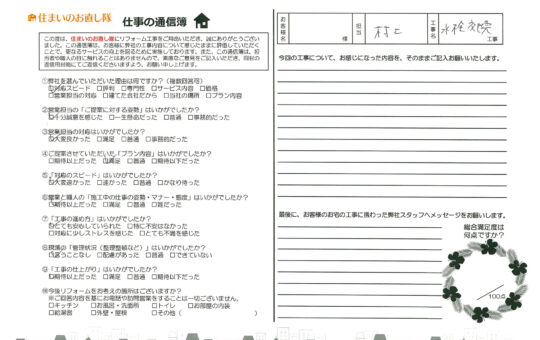 住まいのお直し隊
仕事の通信簿
この度は、住まいのお直し隊にリフォーム工事をご用命いただき、誠にありがとうござい
ました。この通信簿は、お客様に弊社の工事内容について感じたままに評価していただく
ことで、更なるサービスの向上を図るために実施しております。また、この通信簿は、担
当者や職人の目に触れることはありませんので、素直なご意見をご記入いただき、同封の
返信用封筒にてご返信くださいますよう、お願い申し上げます。
①弊社を選んでいただいた理由は何ですか？（複数回答可）
□対応スピード □評判 □専門性 □サービス内容 □価格
□営業担当の対応 □建てた会社だから □当社の場所 □プラン内容
②営業担当の「ご提案に対する姿勢」はいかがでしたか？
□十分誠意を感じた □一生懸命だった □普通 □事務的だった
③営業担当の対応はいかがでしたか？
□大変良かった □満足 □普通 □事務的だった
④ご提案させていただいた「プラン内容」はいかがでしたか？
□期待以上だった □満足 □普通 □期待以下だった
⑤「対応のスピード」はいかがでしたか？
□大変速かった □速かった □普通 □かなり待った
⑥営業と職人の「施工中の仕事の姿勢・マナー・態度」はいかがでしたか？
□期待以上だった □満足 □普通 □雑だった
⑦「工事の進め方」はいかがでしたか？
□とても安心していられた □特に不安はなかった
□対応に少しストレスを感じた □とても不満を感じた
⑧現場の「管理状況（整理整頓など）」はいかがでしたか？
□言うことなし □配慮があった □普通 □できていない
⑨「工事の仕上がり」はいかがでしたか？
□期待以上だった □満足 □普通 □期待以下だった
⑩今後リフォームをお考えの箇所はございますか？
※ご回答内容を基にお電話や訪問営業をすることは一切ございません。
□キッチン □お風呂・洗面所 □トイレ □お部屋の内装
□給湯器 □外壁・屋根 □その他（ ）
お客様名 様 担当 村上 工事名 水栓交換 工事
今回の工事について、お感じになった内容を、そのままご記入お願いいたします。
最後に、お客様のお宅の工事に携わった弊社スタッフへメッセージをお願いします。
総合満足度は
何点ですか？
／100点